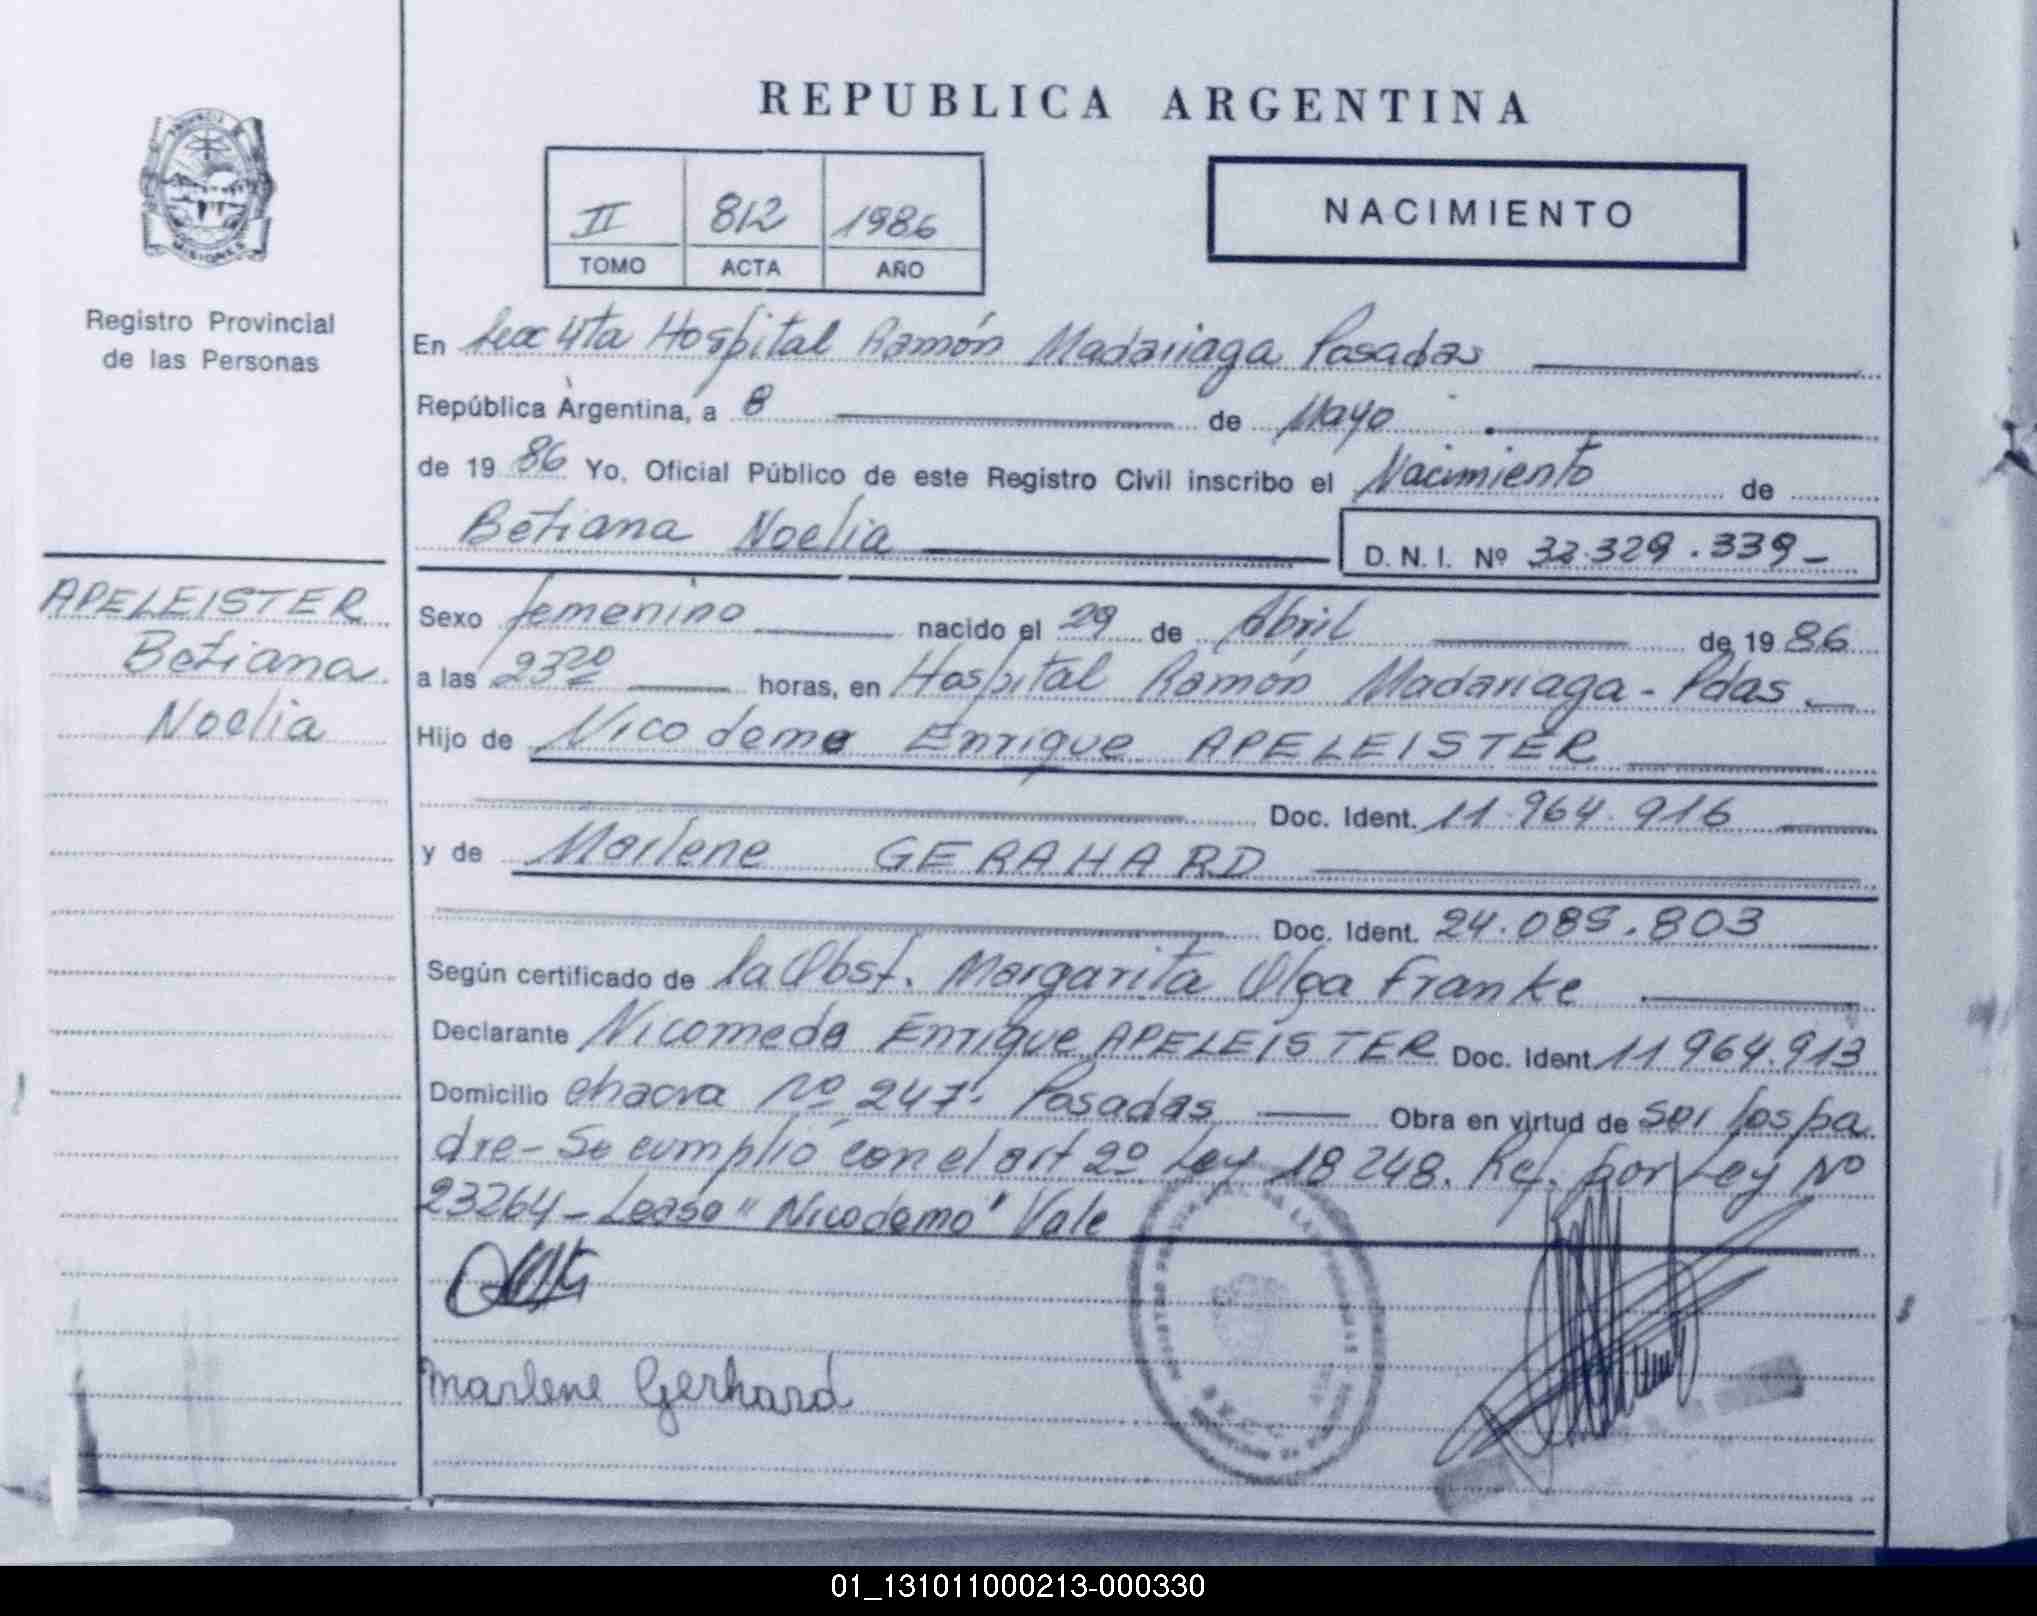 REPUBLICA ARGENTINA
II 812 1986
TOMO ACTA AÑO
NACIMIENTO
MISIONES
Registro Provincial
de las Personas
APELEISTER
Betiana
Noelia
En Secc 4ta Hospital Ramón Madariaga Posadas
República Argentina, a 8 de Mayo
de 1986 Yo, Oficial Público de este Registro Civil inscribo el Nacimiento de
Betiana Noelia D. N. I. Nº 32.329.339-
Sexo femenino nacido el 29 de Abril de 1986
a las 23 20 horas, en Hospital Ramón Madariaga - Pdas
Hijo de Nicodemo Enrique APELEISTER
Doc. Ident. 11.964.916
y de Marlene GERAHARD
Doc. Ident. 24.089.803
Según certificado de la Obst. Margarita Olga Franke
Declarante Nicomedo Enrique APELEISTER Doc. Ident. 11964.913
Domicilio chacra Nº 247. Posadas Obra en virtud de ser los pa
dre- Se cumplió con el art 2º Ley 18248. Ref. por Ley Nº
23264 - Lease "Nicodemo" Vale
Marlene Gerhard
01_131011000213-000330